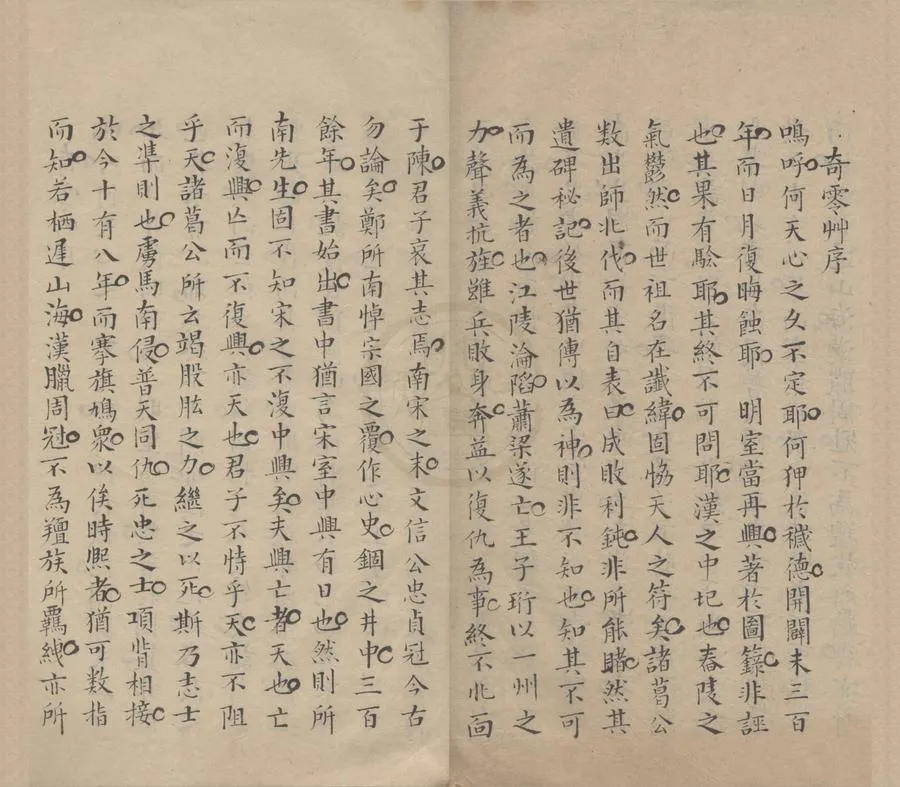 奇零艸序
嗚呼何天心之久不定耶何狎於穢德開闢未三百
年而日月復晦蝕耶 明室當再興著於圖籙非誣
也其果有驗耶其終不可問耶漢之中圮也舂陵之
氣鬱然而世祖名在讖緯固恊天人之符矣諸葛公
数出師北伐而其自表曰成敗利鈍非所能睹然其
遺碑秘記後世猶傳以為神則非不知也知其不可
而為之者也江陵淪䧟蕭梁遂亡王子珩以一州之
力聲義抗旌雖兵敗身奔益以復仇為事終不北面
于陳君子哀其志焉南宋之末文信公忠貞冠今古
勿論矣鄭所南悼宗國之覆作心史錮之井中三百
餘年其書始出書中猶言宋室中興有日也然則所
南先生固不知宋之不復中興矣夫興亡者天也亡
而復興亾而不復興亦天也君子不恃乎天亦不阻
乎天諸葛公所云竭股肱之力繼之以死斯乃志士
之凖則也虜馬南侵普天同仇死忠之士項背相接
於今十有八年而搴旗鳩衆以俟時熙者猶可数指
而知若栖遲山海漢臘周冠不為羶族所羈絏亦所